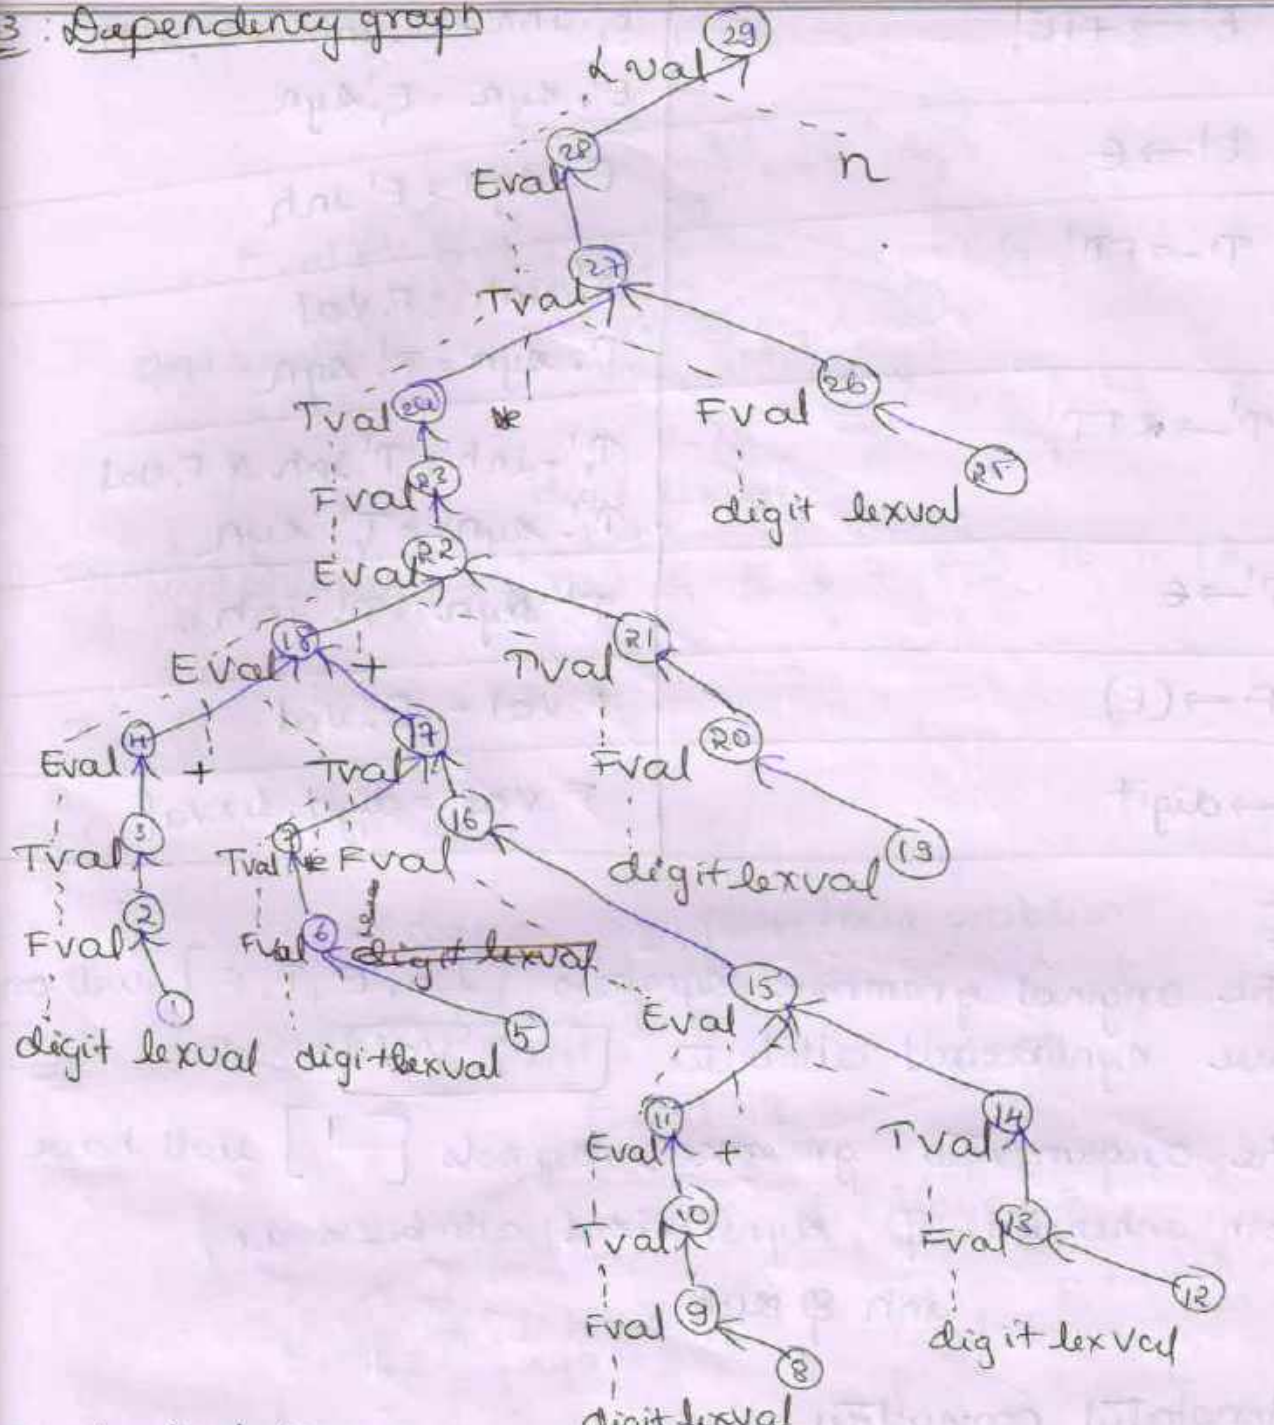 3: Dependency graph
29
L val
28
Eval
n
27
Tval
24
26
Tval
*
Fval
25
23
Fval
digit lexval
22
Eval
18
21
Eval
+
Tval
4
17
20
Eval
+
Tval
Fval
16
3
7
19
Tval
Tval * Fval
digit lexval
2
6
Fval
Fval
digit lexval
15
1
5
Eval
digit lexval digit lexval
11
14
Eval
+
Tval
10
13
Tval
Fval
12
9
Fval
digit lexval
8
digit lexval